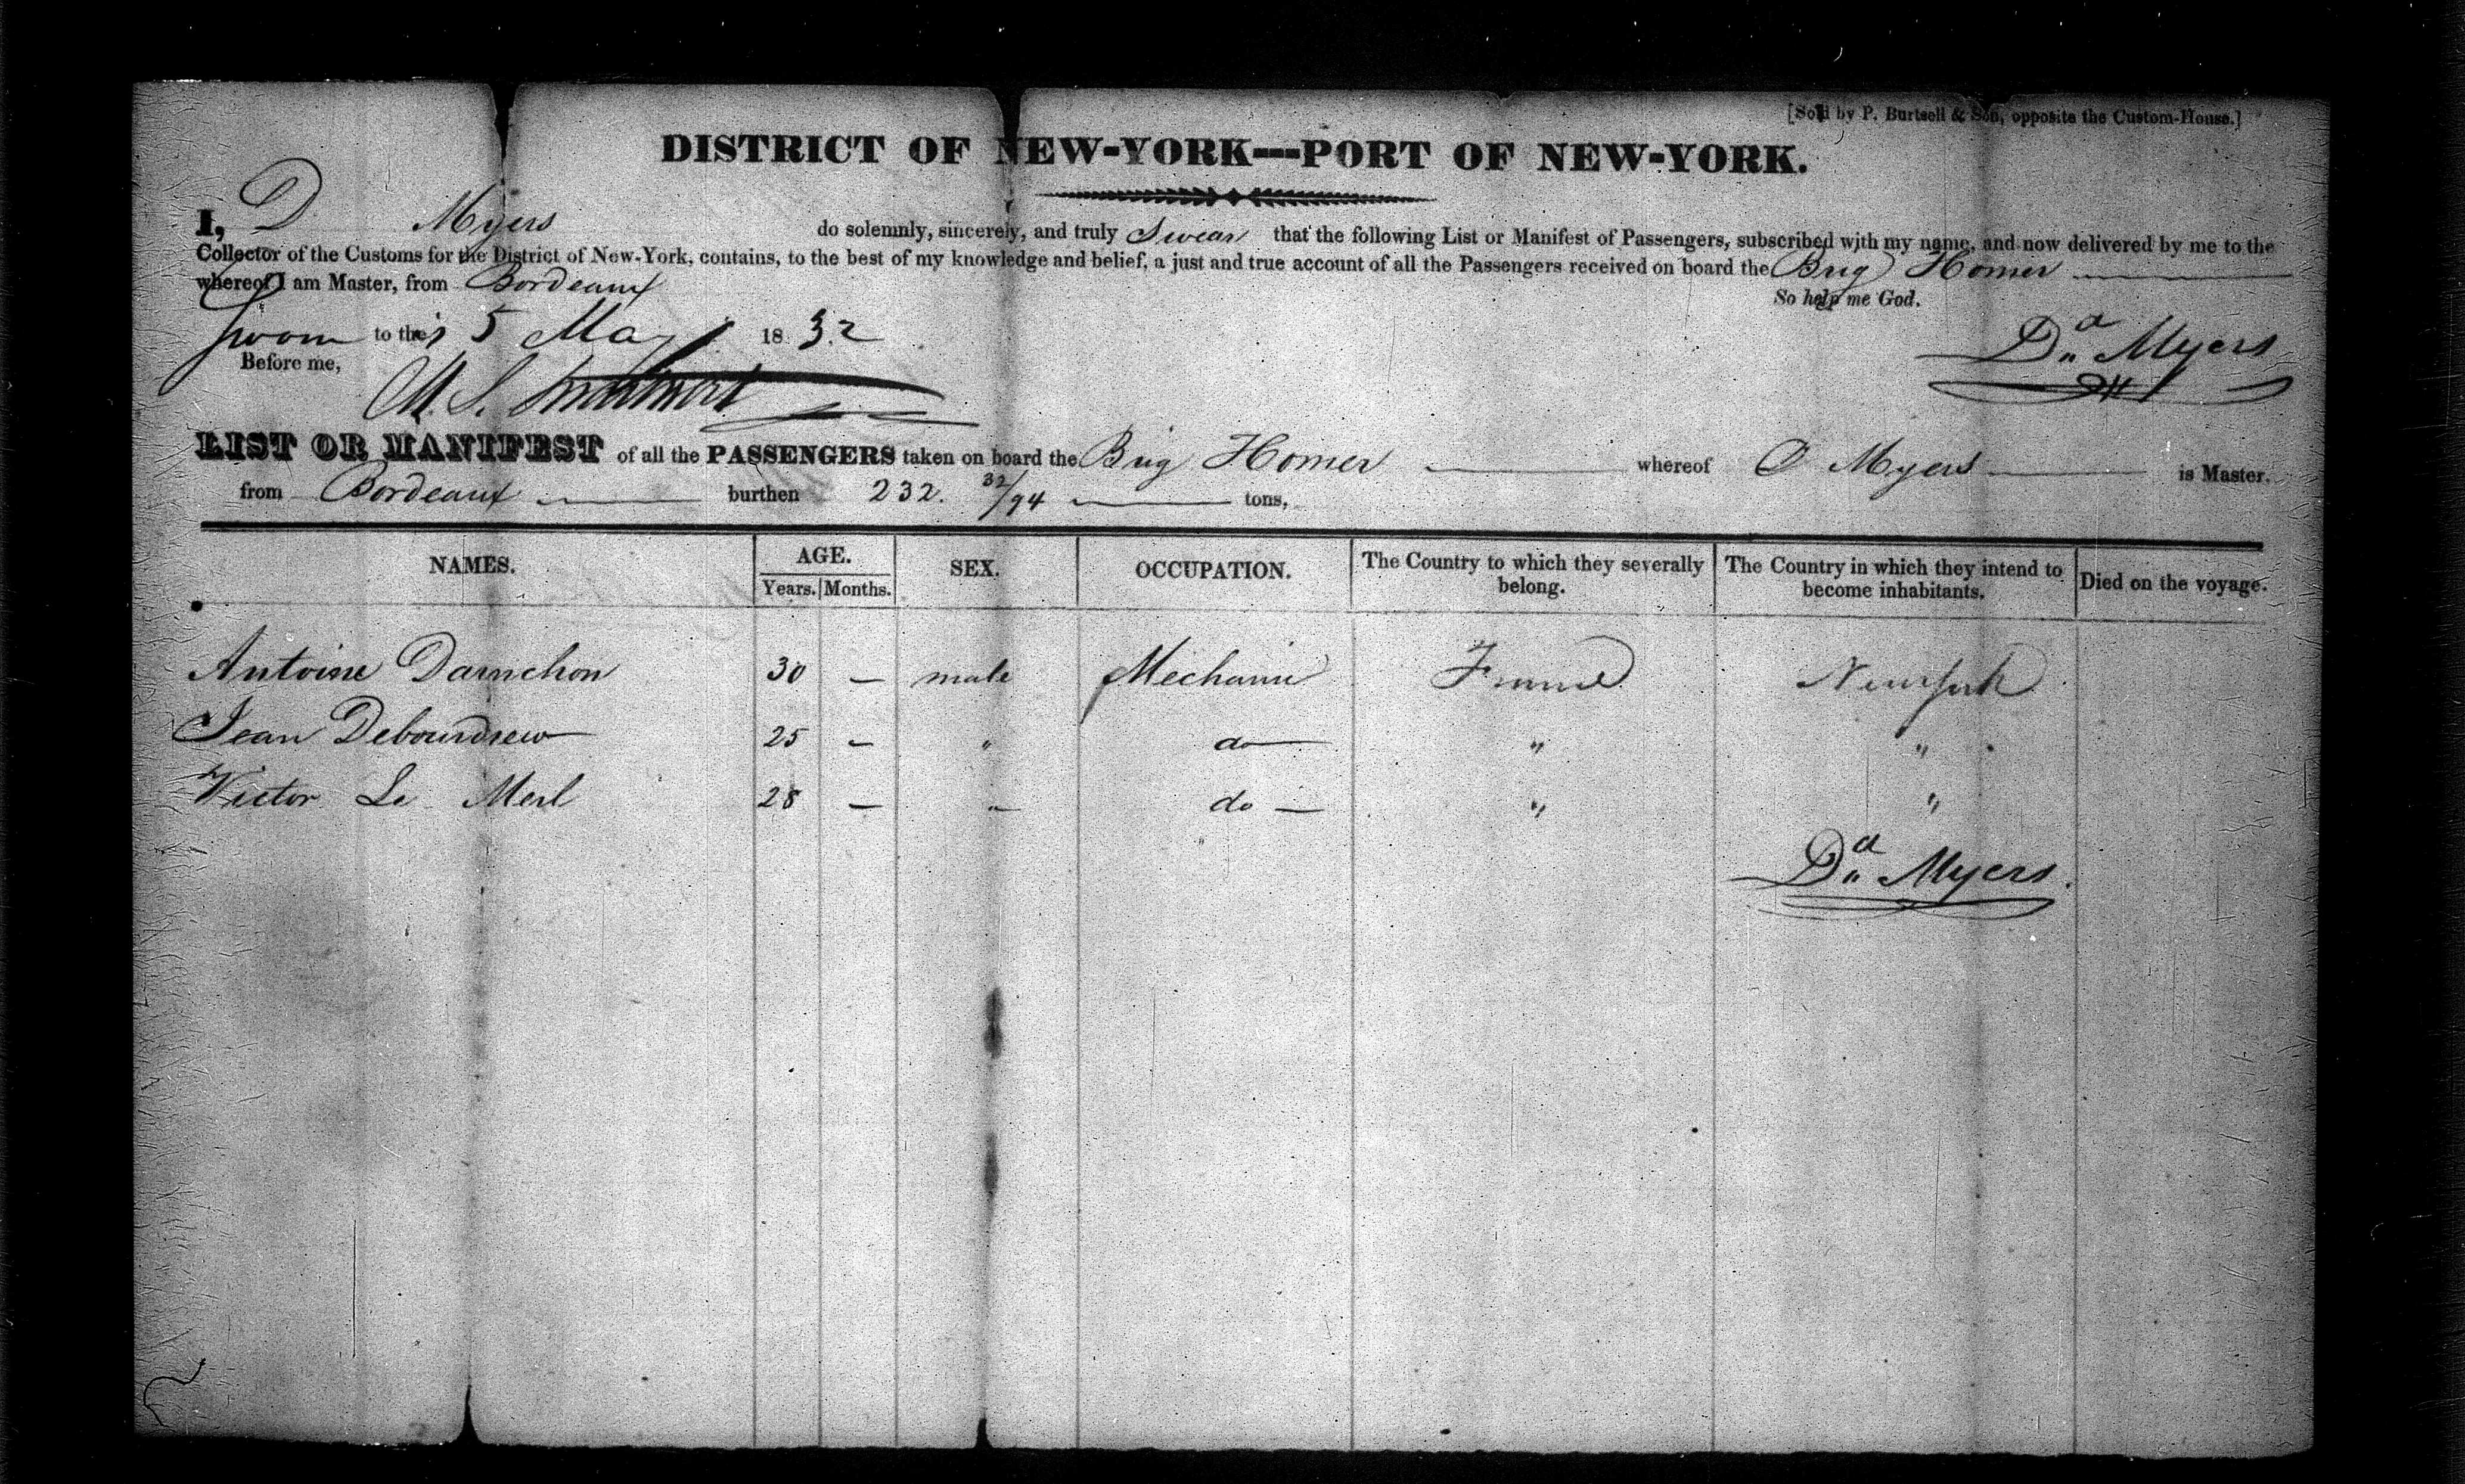 [Sold by P. Burtsell & Son, opposite the Custom-House.]
DISTRICT OF NEW-YORK---PORT OF NEW-YORK.
I, D Myers do solemnly, sincerely, and truly Swear that the following List or Manifest of Passengers, subscribed with my name, and now delivered by me to the
Collector of the Customs for the District of New-York, contains, to the best of my knowledge and belief, a just and true account of all the Passengers received on board the Brig Homer
whereof I am Master, from Bordeaux
So help me God.
Sworn to this 5 May 1832
Da Myers
Before me,
LIST OR MANIFEST of all the PASSENGERS taken on board the Brig Homer whereof D Myers is Master.
from Bordeaux burthen 232. 32/94 tons,
NAMES. AGE. SEX. OCCUPATION. The Country to which they severally belong. The Country in which they intend to become inhabitants. Died on the voyage.
Years. Months.
Antoine 30 — male Mechanic France New York
Jean 25 — " do " "
Victor Le Merl 28 — " do — " "
Da Myers.